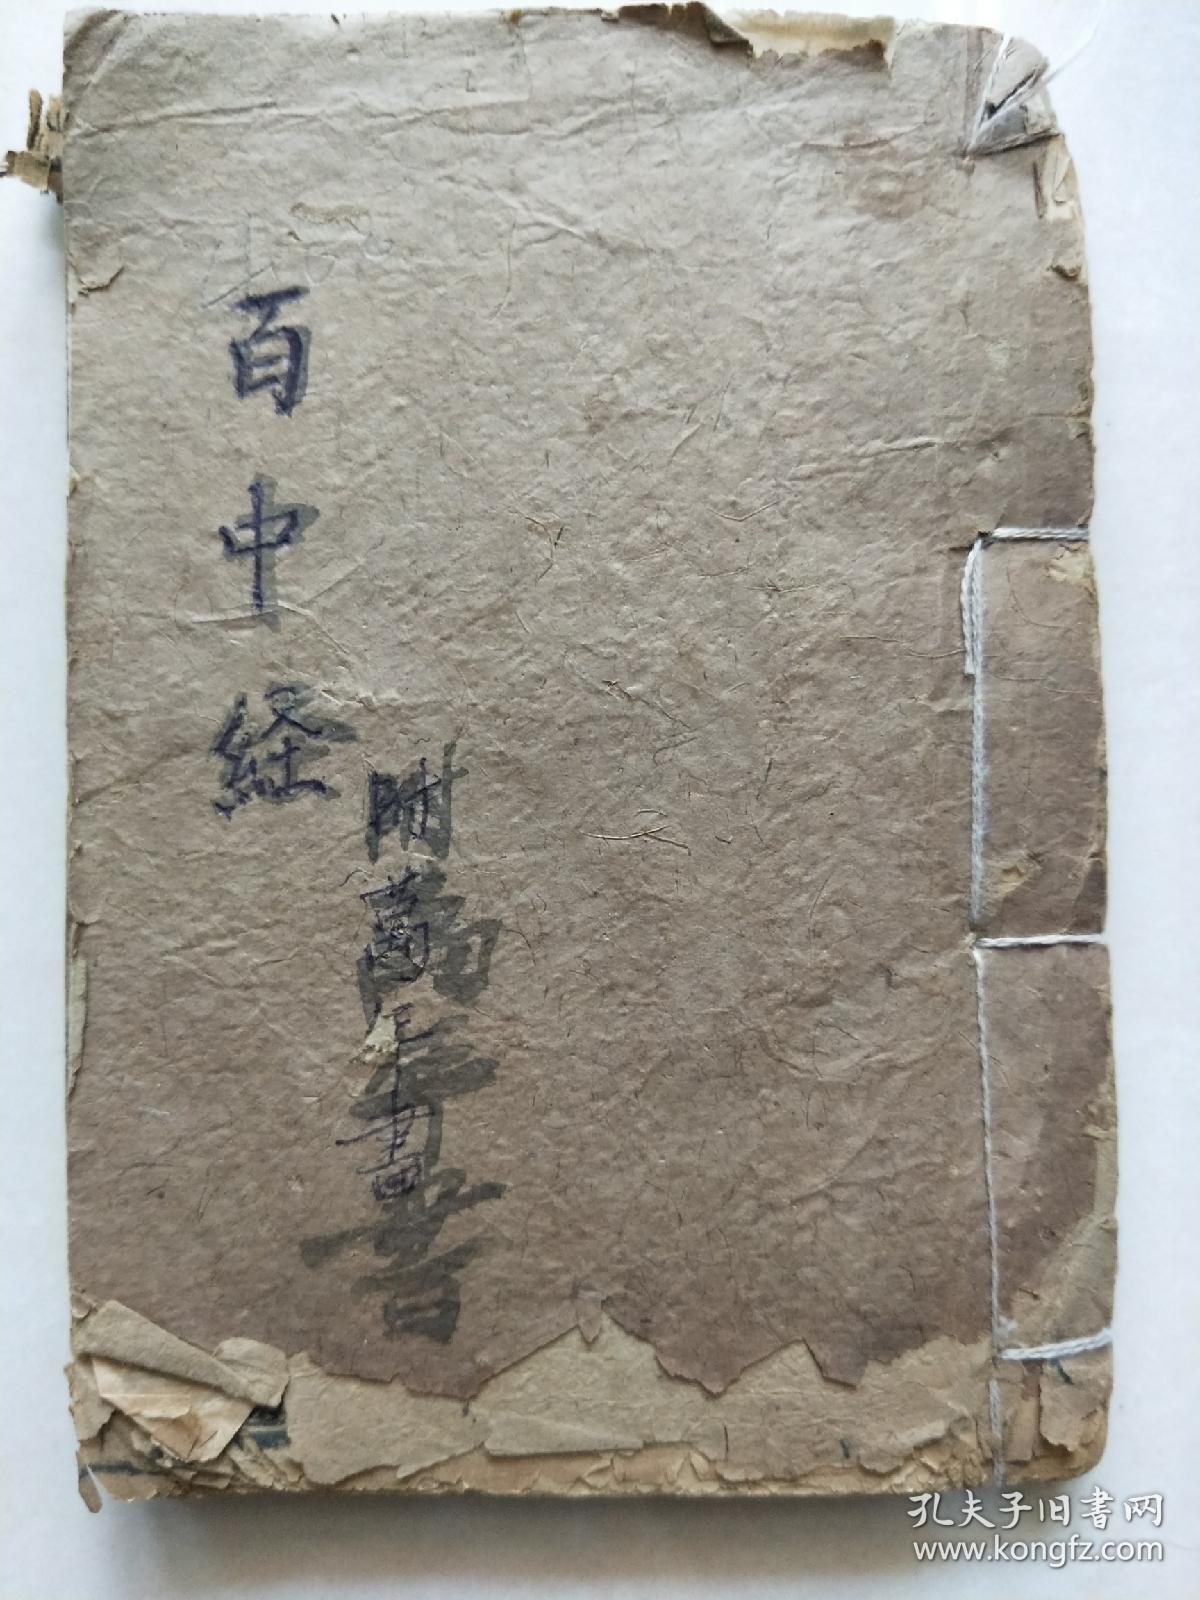 百中経
附萬年書
孔夫子旧书网
www.kongfz.com